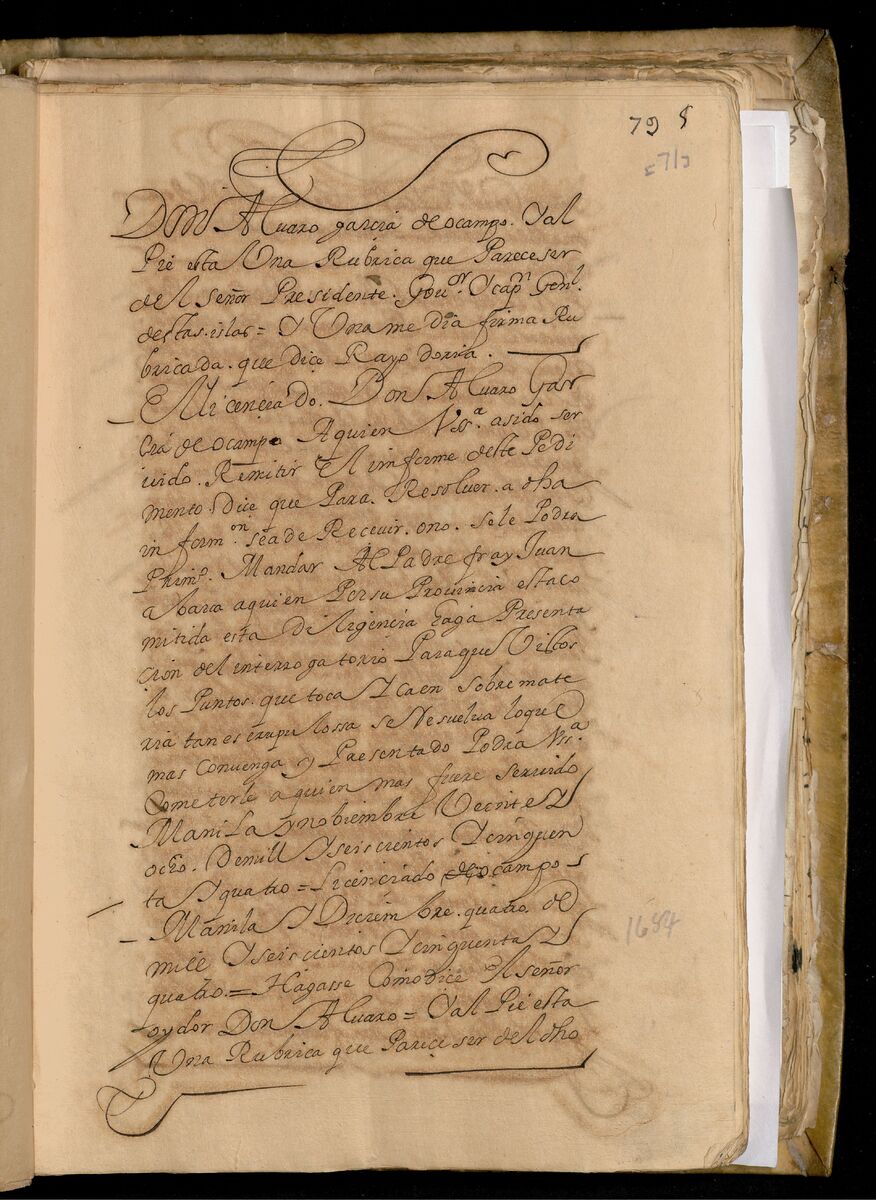 79 8
[71]
Don Aluaro garcia de ocampo. Y al
Pie esta Una Rubrica que Pareceser
del señor Presidente. Gouor. Y capn Genl.
destas. islas = Y Una media firma Ru
bricada. que dice Rayo doria.
El licenciado. Don Aluaro Gar
cia de ocampo Aquien Vssa. a sido ser
uido. Remitir El informe deste Pedi
mento. Dice que Para. Resoluer. a dha
informon. sea de Receuir. ono. sele Podra
Primo. Mandar Al Padre fray Juan
abarca aquien Porsu Prouincia estaco
mitida esta diligencia Haga Presenta
cion del interrogatorio Paraque Vistos
los Puntos. que toca Y caen sobre mate
ria tan escrupulossa se Resuelua loque
mas Conuenga y Presentado Podra Vssa
Cometerle aquien mas fuere seruido
Manila y nobiembre Veinte Y
ocho. De mill Y seiscientos Y cinquen
ta Y quatro = Licenciado de ocampo
Manila Y Diciembre. quatro. de
mill Y seiscientos Y cinquenta Y
quatro. = Hagasse Como dice El señor
oydor Don Aluaro = Y al Pie esta
Una Rubrica que Parece ser del dho
1654